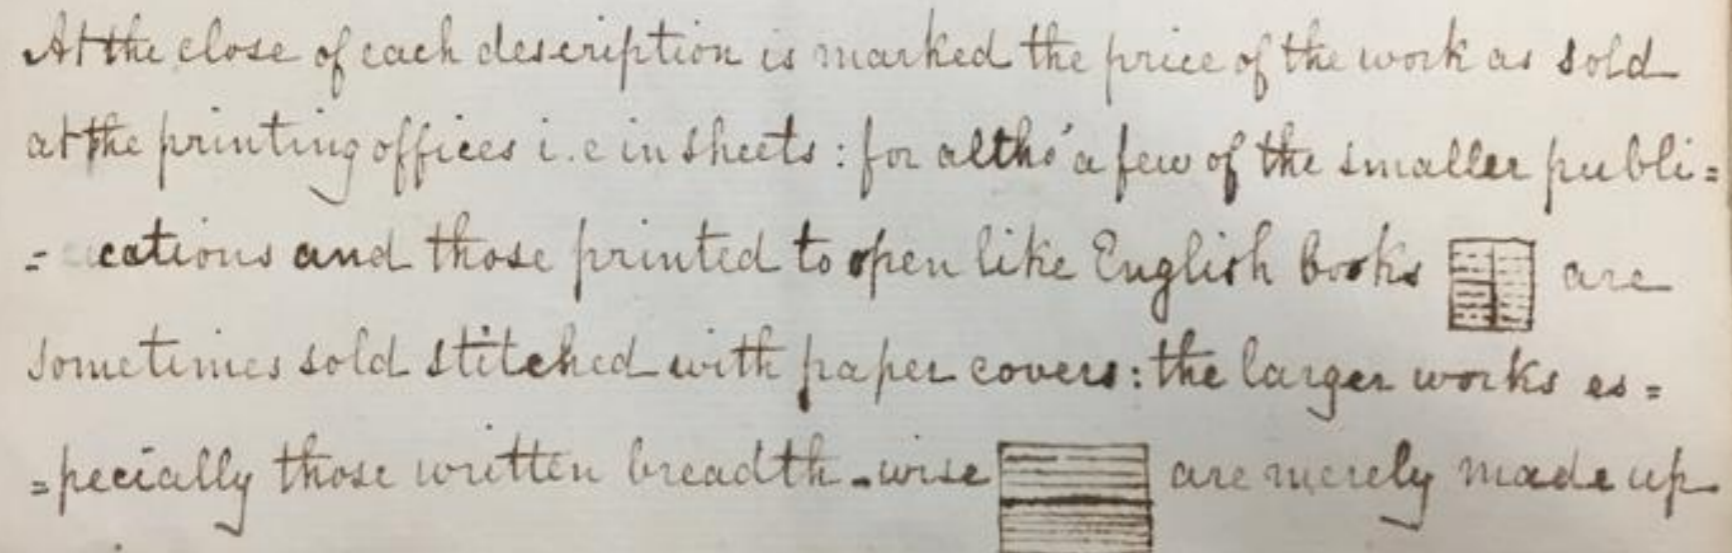 At the close of each description is marked the price of the work as sold
at the printing offices i.e in sheets : for altho' a few of the smaller publi=
=cations and those printed to open like English books are
sometimes sold stitched with paper covers : the larger works es=
=pecially those written breadth-wise are merely made up